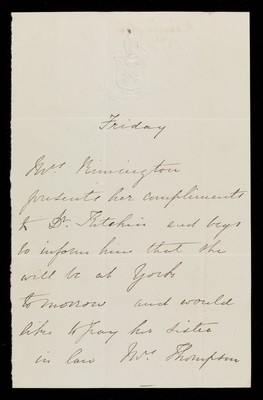 Friday
Mrs Rimington
presents her compliments
to Dr. Kitchin and begs
to inform him that she
will be at York
tomorrow and would
like to pay her sister
in law Mrs Thompson